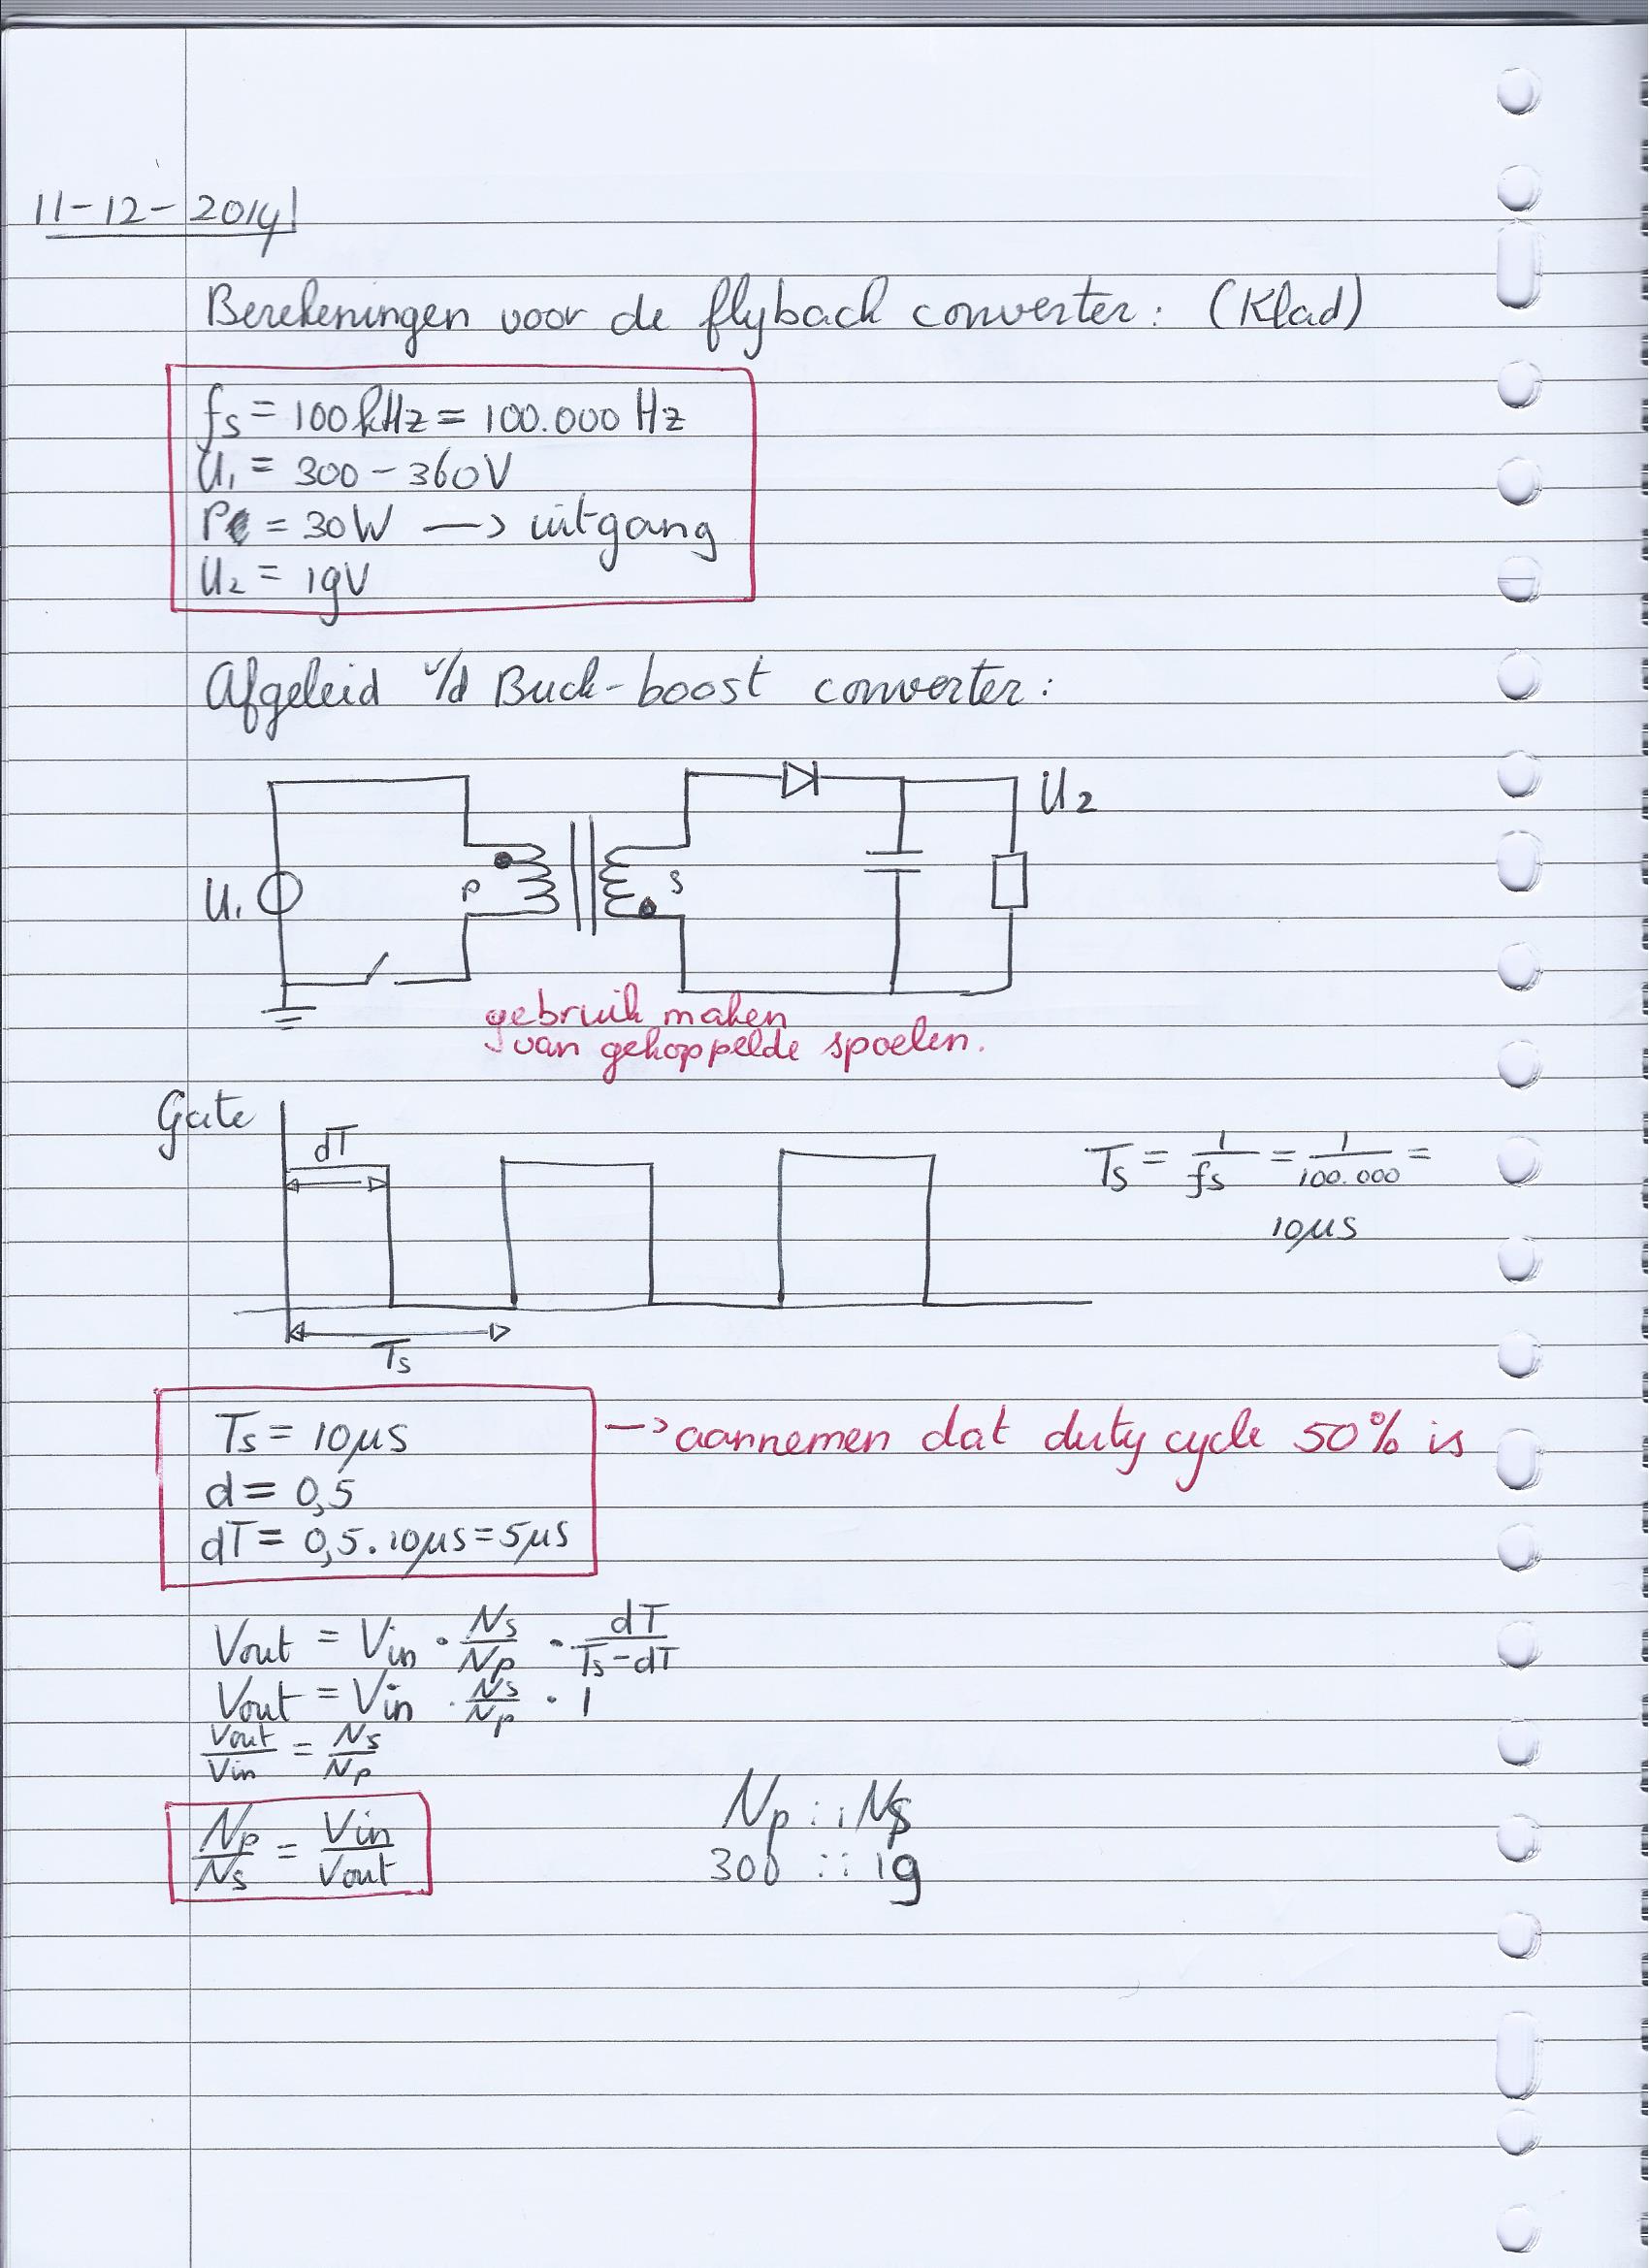 11-12-2014
Berekeningen voor de flyback converter: (Klad)
fs = 100kHz = 100.000 Hz
U1 = 300 - 360V
P = 30W —> uitgang
U2 = 19V
Afgeleid v/d Buck-boost converter:
U2
U1
P
S
gebruik maken
van gekoppelde spoelen.
Gate
dT
Ts = 1/fs = 1/100.000 =
10µs
Ts
Ts = 10µs
—> aannemen dat duty cycle 50% is
d = 0,5
dT = 0,5 . 10µs = 5µs
Vout = Vin · Ns/Np · dT/Ts-dT
Vout = Vin · Ns/Np · 1
Vout/Vin = Ns/Np
Np/Ns = Vin/Vout
Np :: Ns
300 :: 19